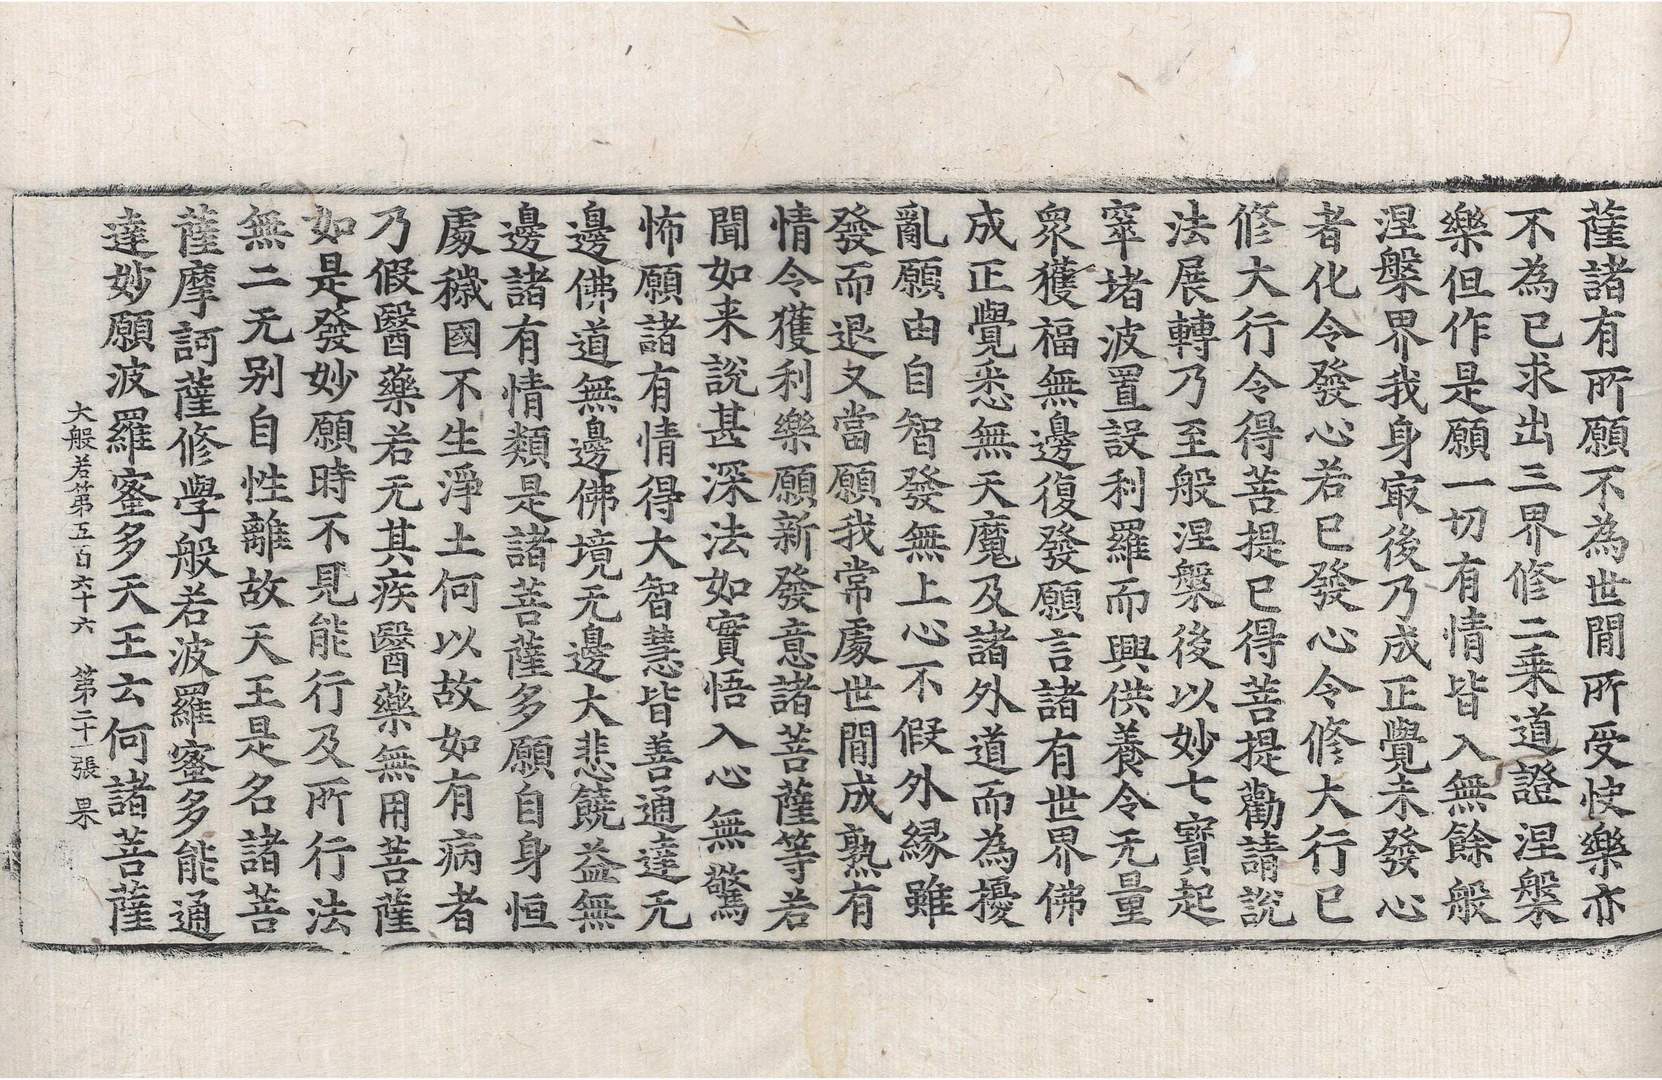 薩諸有所願不為世間所受快樂亦
不為已求出三界修二乗道證涅槃
樂但作是願一切有情皆入無餘般
涅槃界我身㝡後乃成正覺未發心
者化令發心若已發心令修大行已
修大行令得菩提已得菩提勸請說
法展轉乃至般涅槃後以妙七寳起
窣堵波置設利羅而興供養令无量
衆獲福無邊復發願言諸有世界佛
成正覺悉無天魔及諸外道而為擾
亂願由自智發無上心不假外縁雖
發而退又當願我常處世間成熟有
情令獲利樂願新發意諸菩薩等若
聞如来說甚深法如實悟入心無驚
怖願諸有情得大智慧皆善通達无
邊佛道無邊佛境无邊大悲饒益無
邊諸有情類是諸菩薩多願自身恒
處穢國不生淨土何以故如有病者
乃假醫藥若无其疾醫藥無用菩薩
如是發妙願時不見能行及所行法
無二无别自性離故天王是名諸菩
薩摩訶薩修學般若波羅蜜多能通
達妙願波羅蜜多天王云何諸菩薩
大般若第五百六十六　第二十一張　果